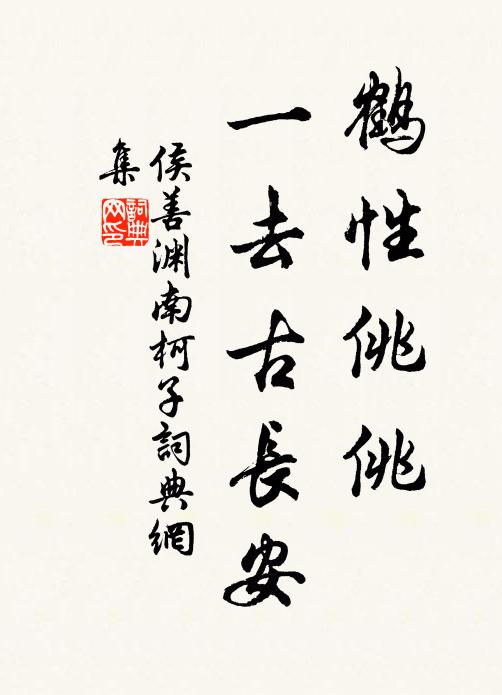 鶴性佻佻
一去古長安
侯善淵南柯子詞典網
集
詞典
网印